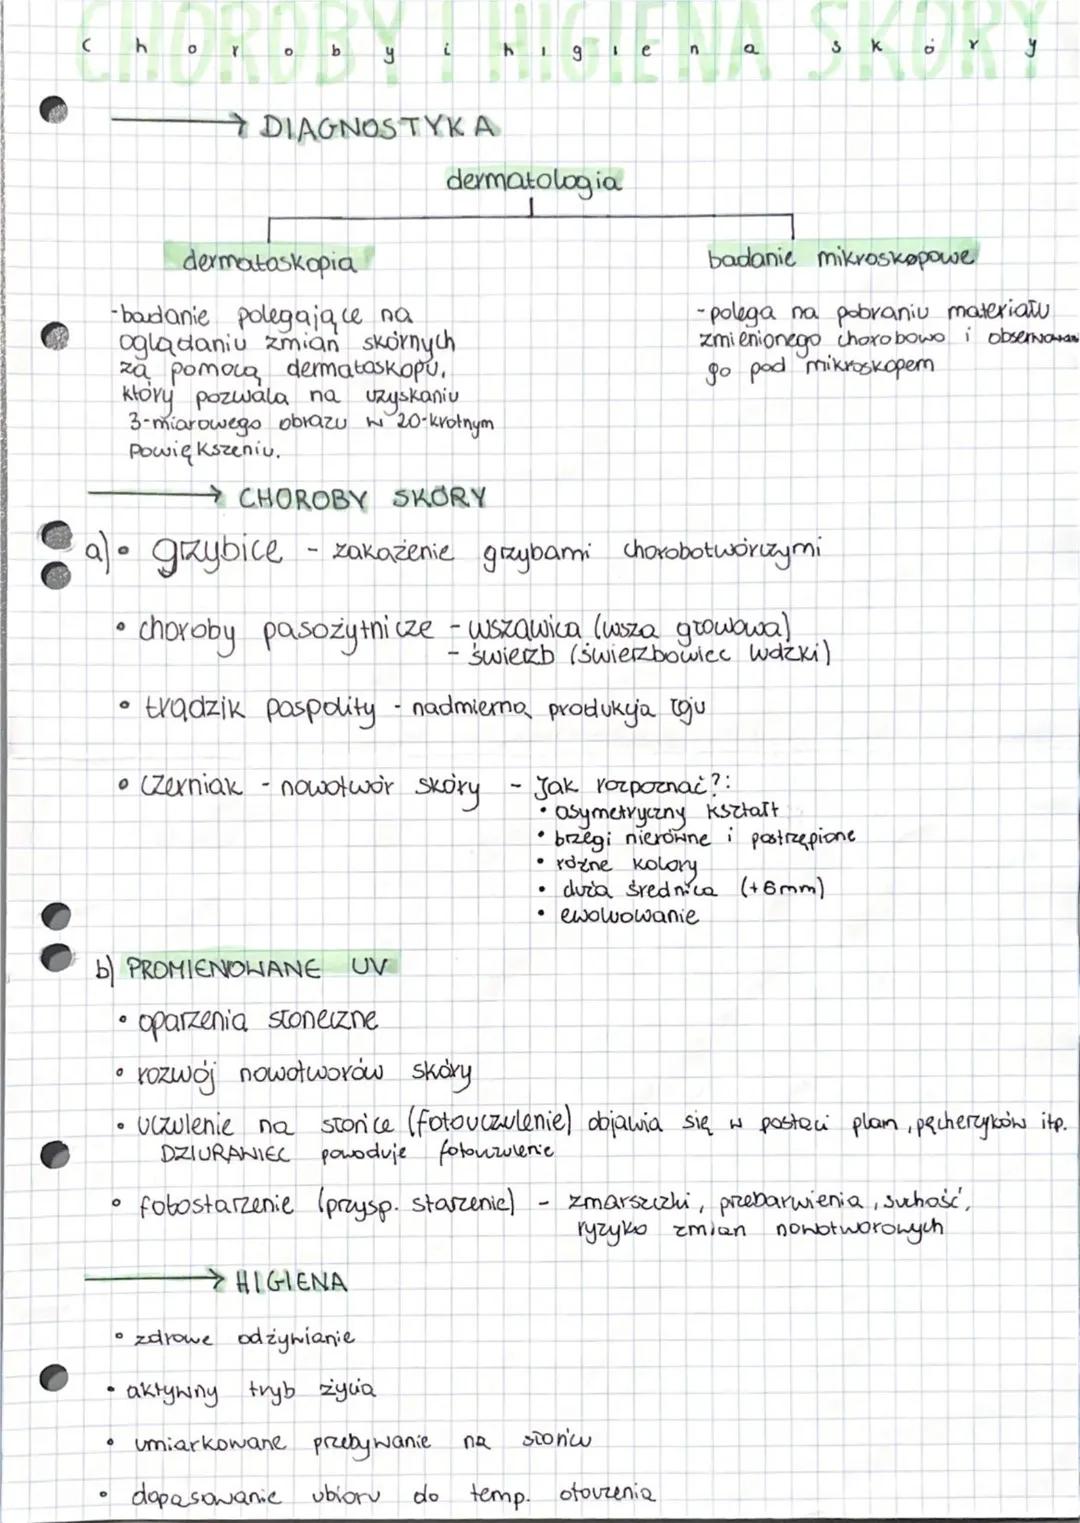 CHOROBY I HIGIENA SKÓRY
Choroby i higiena skóry
→ DIAGNOSTYKA
dermatologia
dermatoskopia
-badanie polegające na
oglądaniu zmian skórnych
za pomocą dermatoskopu,
który pozwala na uzyskaniu
3-miarowego obrazu w 20-krotnym
powiększeniu.
badanie mikroskopowe
-polega na pobraniu materiału
zmienionego chorobowo i obserwowan
go pod mikroskopem
→ CHOROBY SKÓRY
a) • grzybice - zakażenie grzybami chorobotwórczymi
• choroby pasożytnicze - wszawica (wsza głowowa)
- świerzb (świerzbowiec ludzki)
• trądzik pospolity - nadmierna produkcja łoju
• czerniak - nowotwór skóry - Jak rozpoznać?:
• asymetryczny kształt
• brzegi nierówne i postrzępione
• różne kolory
• duża średnica (+6mm)
• ewoluowanie
b) PROMIENOWANE UV
• oparzenia słoneczne
• rozwój nowotworów skóry
• uczulenie na słońce (fotouczulenie) objawia się w postaci plam, pęcherzyków itp.
DZIURAWIEC powoduje fotouczulenie
• fotostarzenie (przysp. starzenie) - zmarszczki, przebarwienia, suchość,
ryzyko zmian nowotworowych
→ HIGIENA
• zdrowe odżywianie
• aktywny tryb życia
• umiarkowane przebywanie na słońcu
• dopasowanie ubioru do temp. otoczenia